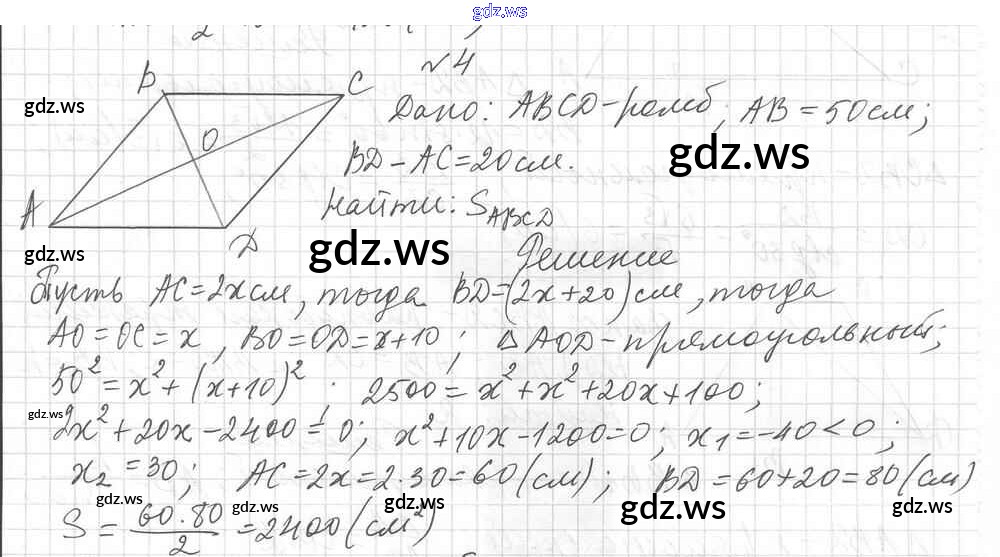 gdz.ws
2
№4
B C
gdz.ws
O
Дано: ABCD-ромб, AB=50см;
BD-AC=20см.
gdz.ws
A
Найти: S_ABCD
gdz.ws D gdz.ws Решение
Пусть AC=2x см, тогда BD=(2x+20) см, тогда
AO=OC=x, BO=OD=x+10; △AOD-прямоугольный;
50²=x²+(x+10)²; 2500=x²+x²+20x+100;
gdz.ws
2x²+20x-2400=0; x²+10x-1200=0; x₁=-40<0;
x₂=30; AC=2x=2·30=60(см); BD=60+20=80(см)
gdz.ws gdz.ws gdz.ws gdz.ws
S=60·80/2=2400(см²)
gdz.ws